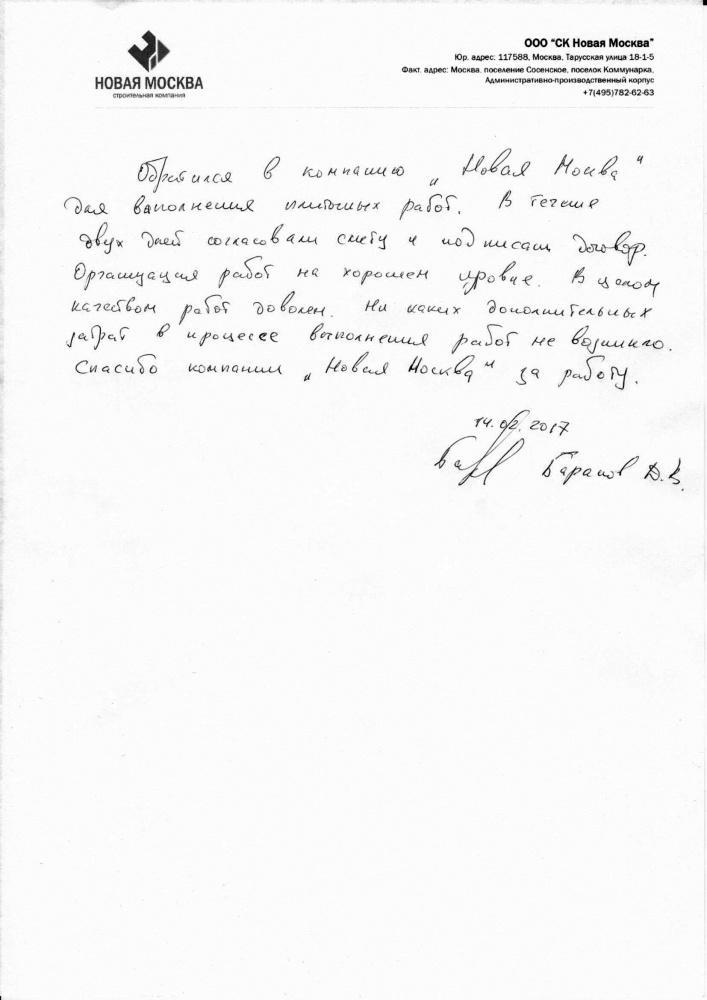 НОВАЯ МОСКВА
строительная компания
ООО “СК Новая Москва”
Юр. адрес: 117588, Москва, Тарусская улица 18-1-5
Факт. адрес: Москва. поселение Сосенское, поселок Коммунарка,
Административно-производственный корпус
+7(495)782-62-63
Обратился в компанию „Новая Москва“
для выполнения плиточных работ. В течение
двух дней согласовали смету и подписали договор.
Организация работ на хорошем уровне. В целом
качеством работ доволен. Ни каких дополнительных
затрат в процессе выполнения работ не возникло.
Спасибо компании „Новая Москва“ за работу.
14.02.2017
Баранов Д.В.